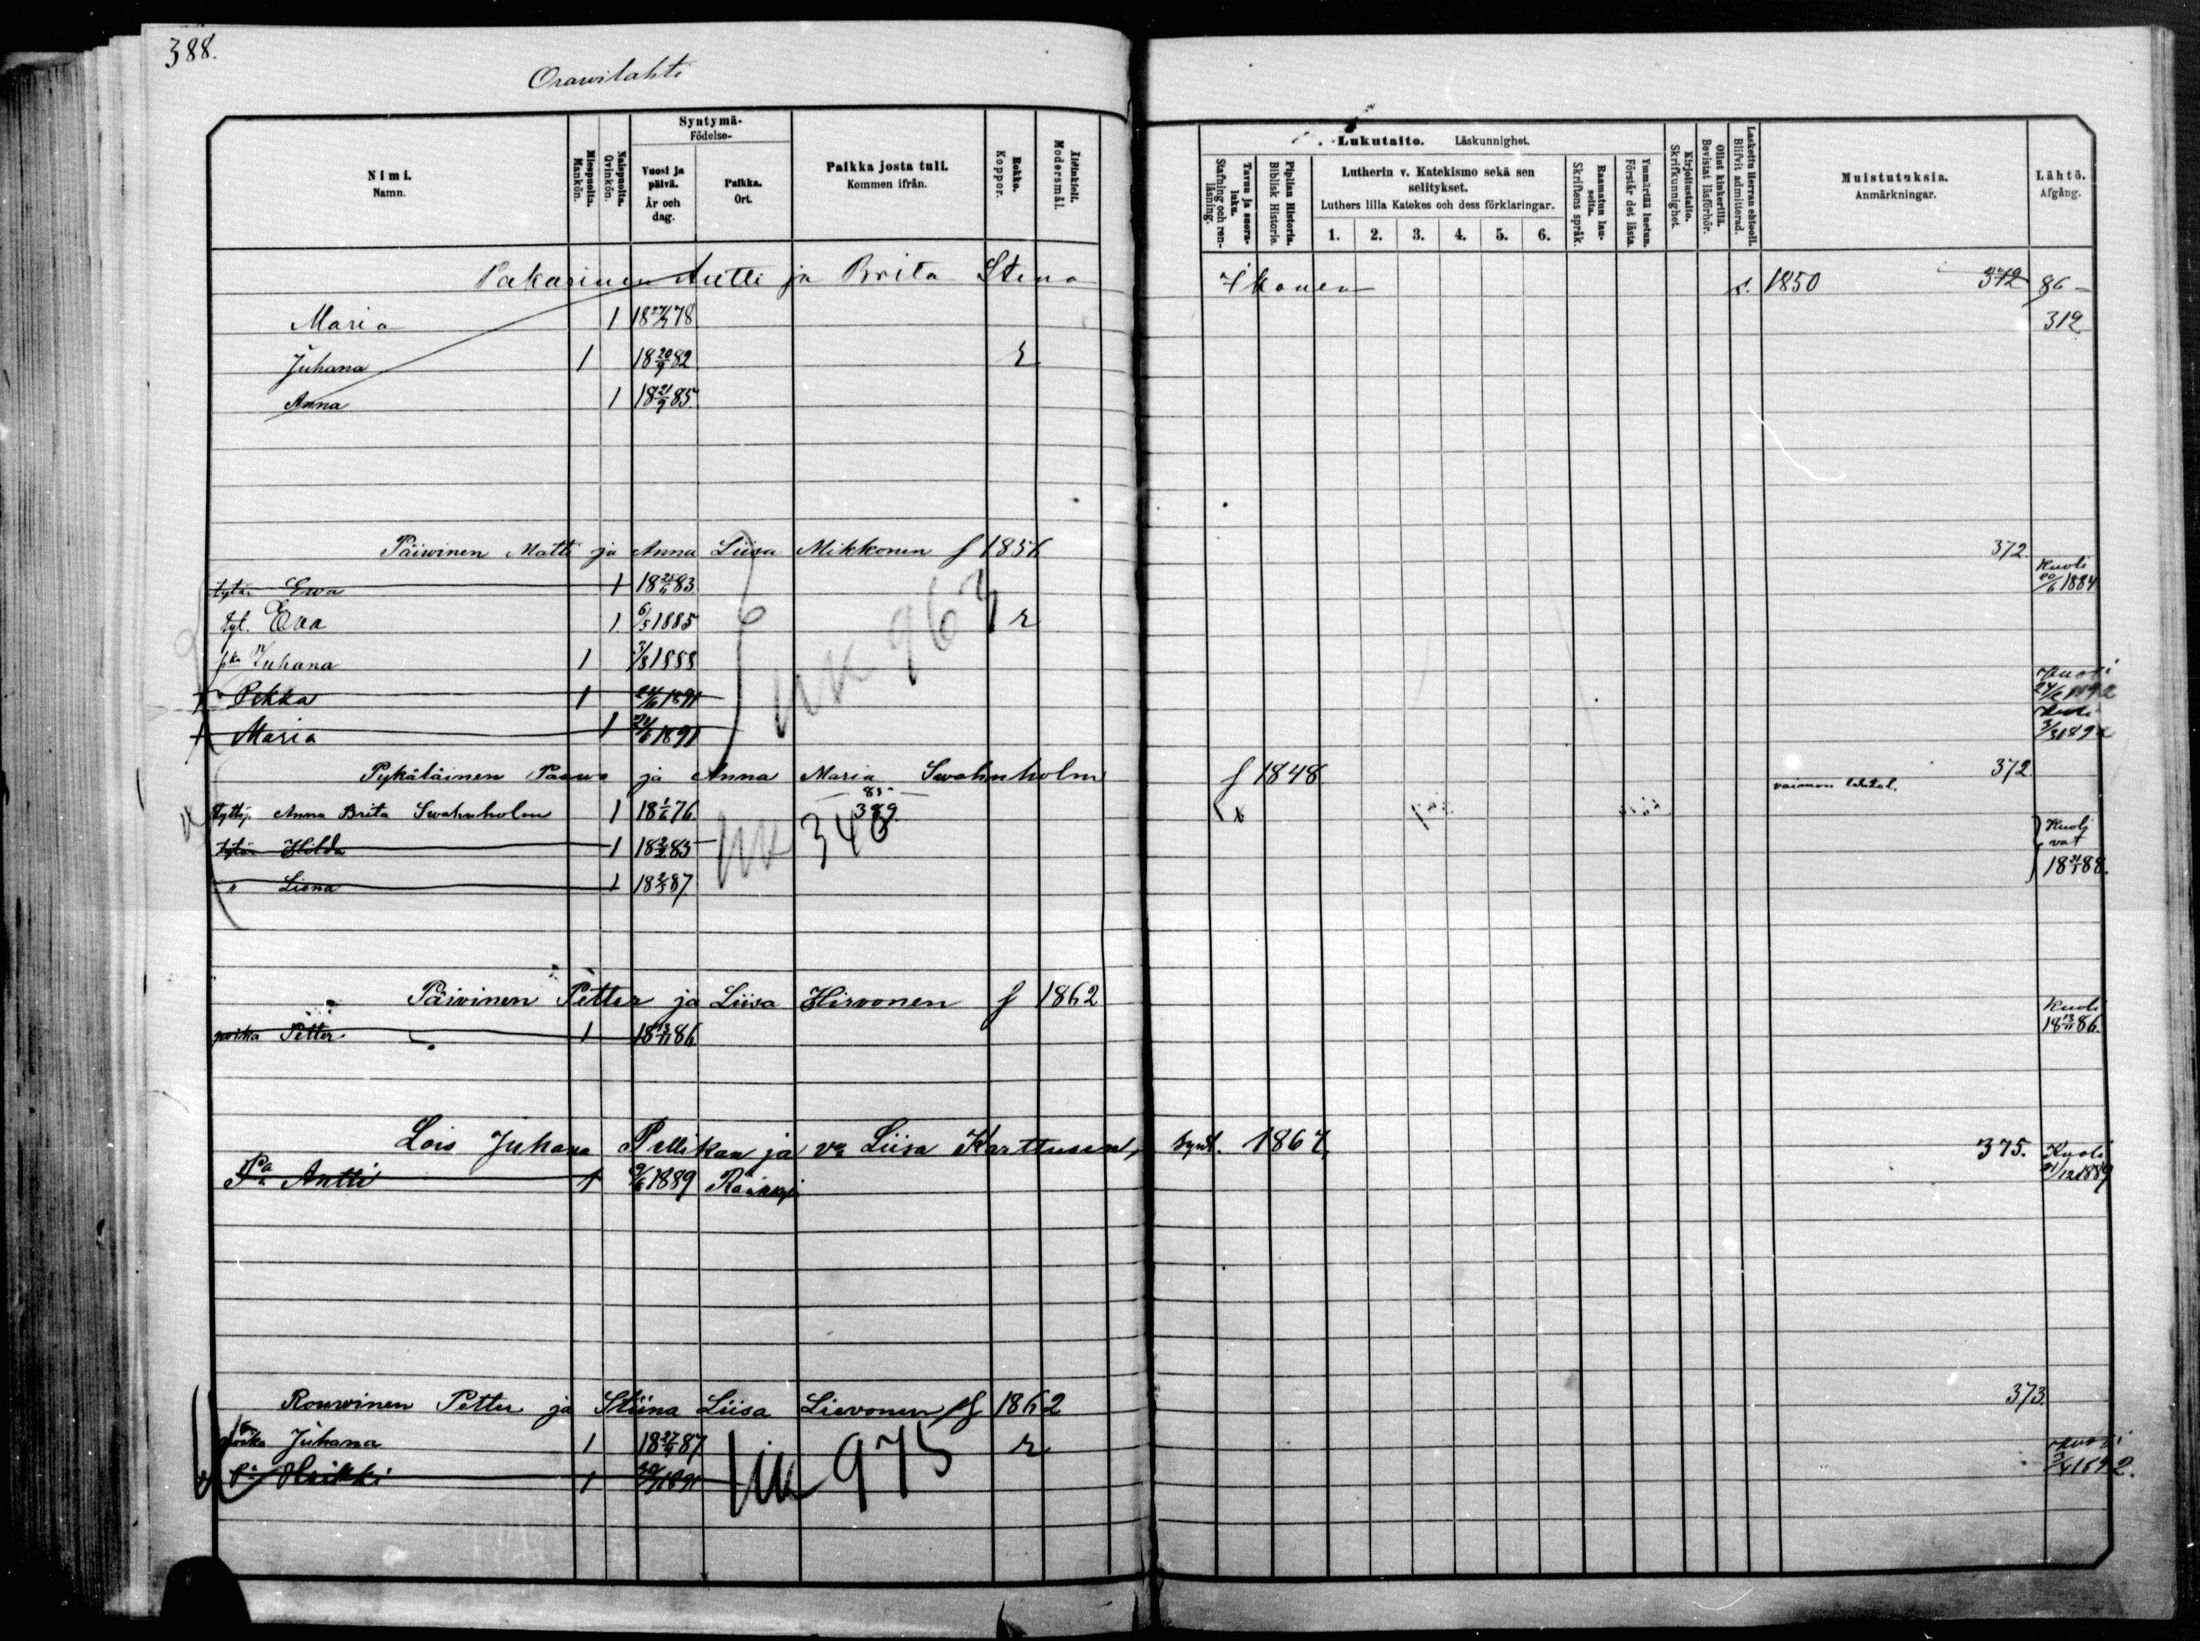 388.
Orawilahti
Nimi. Namn.
Miespuolia. Mankön.
Naispuolia. Qvinkön.
Syntymä- Födelse-
Vuosi ja päivä. År och dag.
Paikka. Ort.
Paikka josta tuli. Kommen ifrån.
Rokko. Koppor.
Äidinkieli. Modersmål.
Lukutaito. Läskunnighet.
Tavuu ja seoraluku. Stafning och renläsning.
Piplian Historia. Biblisk Historie.
Lutherin v. Katekismo sekä sen selitykset.
Luthers lilla Katekes och dess förklaringar.
1. 2. 3. 4. 5. 6.
Raamatun lauseita. Skriftens språk.
Ymmärtää luetun. Förstår det lästa.
Kirjoitustaito. Skrifkunnighet.
Ollut kinkerillä. Bevistat läsförhör.
Laskettu Herran ehtooll. Blifvit admitterad.
Muistutuksia. Anmärkningar.
Lähtö. Afgång.
Pakarinen Antti ja Brita Stina Ikonen s. 1850 372 86
Maria 1 18 78 312
Juhana 1 18 20/9 82 r
Anna 1 18 21/9 85.
Päiwinen Matti ja Anna Liisa Mikkonen f 1856 372.
tytär Ewa 1 18 83 Kuoli 20/6 1884
tyt. Eva 1. 6/5 1885 r
pka Juhana 1 7/8 1888
" Pekka 1 24/6 1891 Kuoli 24/6 1892
Maria 1 24/6 1891 Kuoli 3/3 1892
uk 963
Pykäläinen Paavo ja Anna Maria Swahnholm f 1848 372.
vaimon lehtol.
85
Tyttöp. Anna Brita Swahnholm 1 18 1/6 76 389.
uk 346
tytär Hilda 1 18 85 Kuolivat
" Liena 1 18 87. 18 88.
Päivinen Petter ja Liisa Hirvonen f 1862
poika Petter 1 18 13/11 86 Kuoli 18 13/11 86.
Lois Juhana Pellikan ja va Liisa Karttunen, synt. 1867, 375.
Pa Antti 1 9/6 1889 Kuoli 21/12 1889
Rouwinen Petter ja Stiina Liisa Lievonen f 1862 373.
poika Juhana 1 18 87 r
Pa Heikki 1 1891 Kuoli 1892.
uk 975